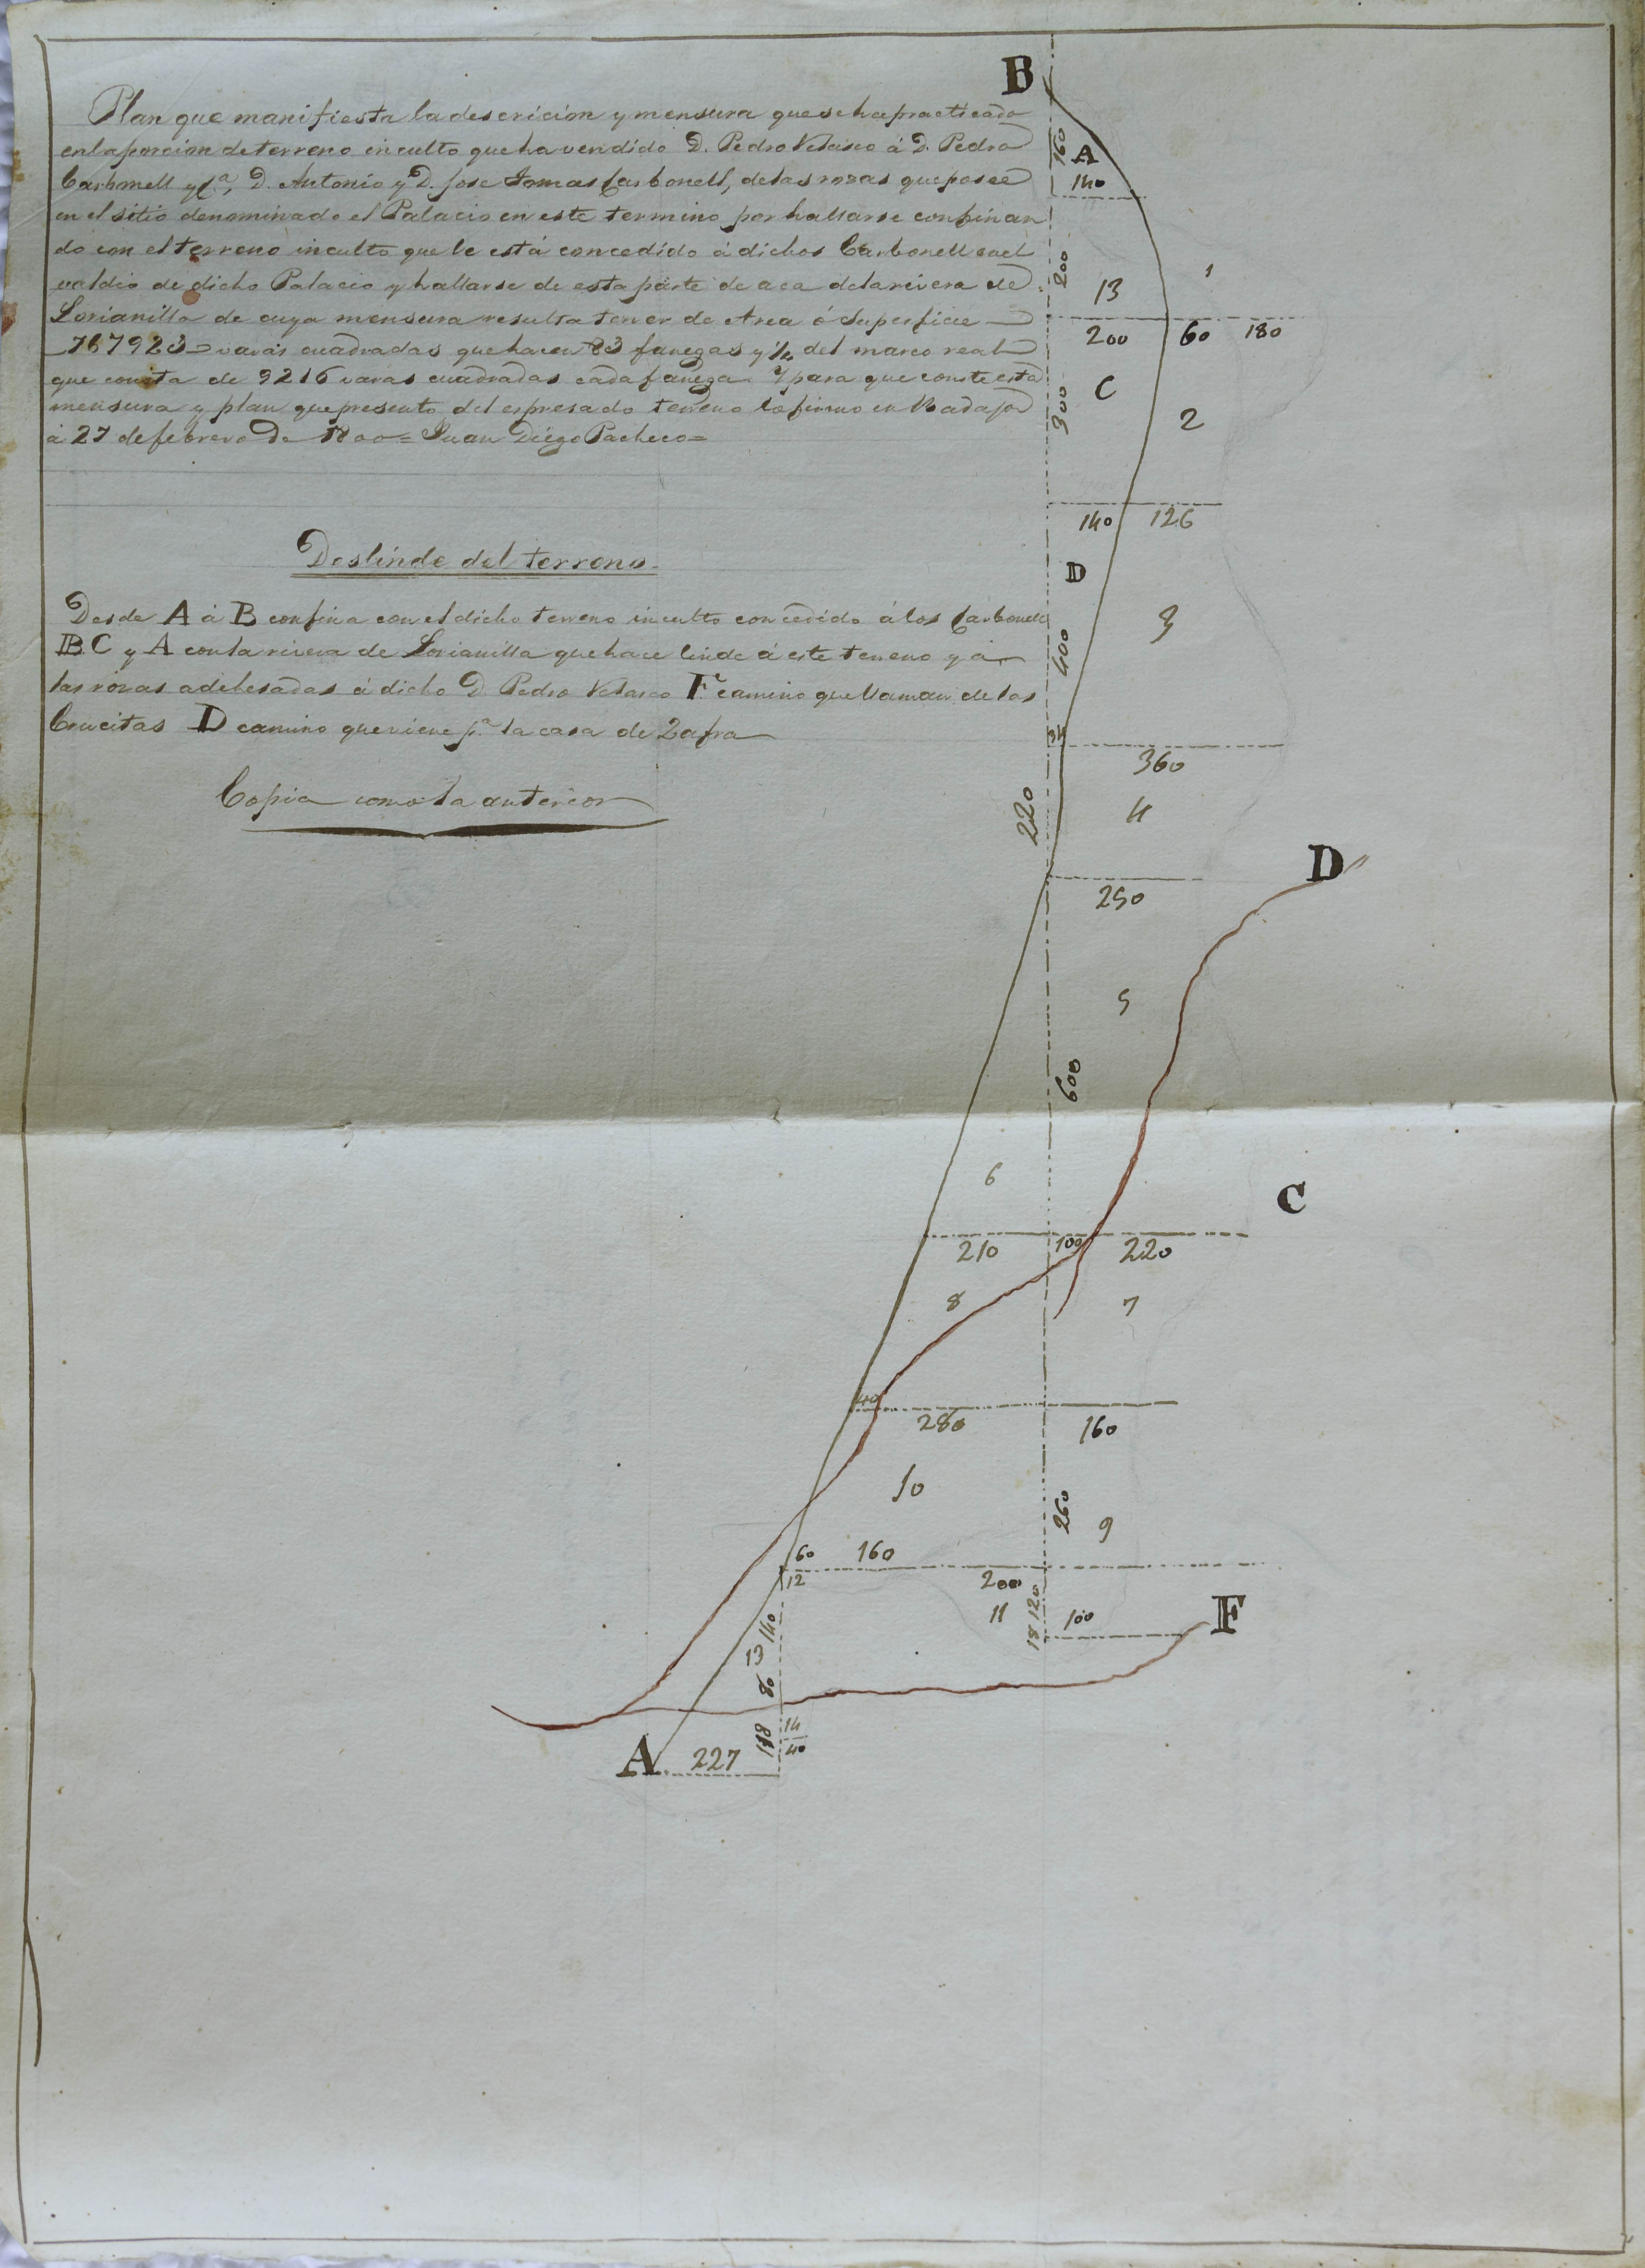 Plan que manifiesta la descricion y mensura que se ha practicado
en la porcion de terreno inculto que ha vendido D. Pedro Velasco á D. Pedro
Carbonell y C.ª, D. Antonio y D. Jose Tomas Carbonell, de las rozas que posée
en el sitio denominado el Palacio en este termino por hallarse confinan
do con el terreno inculto que le está concedido á dichos Carbonell en el
valdio de dicho Palacio y hallarse de esta parte de aca de la rivera de
Lorianilla de cuya mensura resulta tener de Area ó Superficie
767923 varas cuadradas que hacen 83 fanegas y del marco real
que consta de 9216 varas cuadradas cada fanega. Y para que conste esta
mensura y plan que presento del espresado terreno lo firmo en Badajoz
á 27 de febrero de 1800 = Juan Diego Pacheco =
Deslinde del terreno
Desde A á B confina con el dicho terreno inculto concedido á los Carbonell
B.C y A con la rivera de Lorianilla que hace linde á este terreno y á
las rozas adehesadas á dicho D. Pedro Velasco F camino que llaman de las
Crucitas D camino que viene p.ª la casa de Zafra
Copia como la anterior
B
160 A
140
200 13 1
200 60 180
300 C 2
140 126
D
400 3
360
220 4
D
250
5
600
6
C
210 100 220
8 7
40
280 160
10
260 9
60 160
12 200
11 18 120 100
F
140
13
80
14
40
A 227